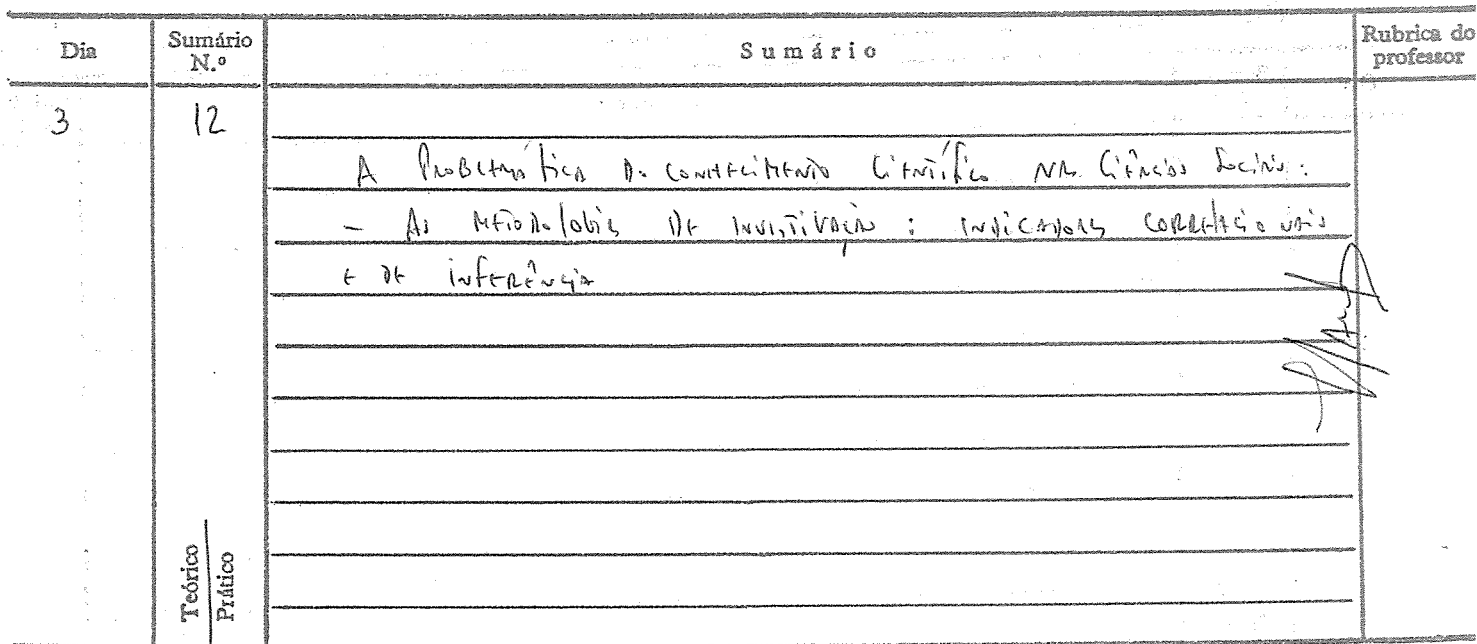 Dia
Sumário N.º
Sumário
Rubrica do professor
3
12
A Problemática do conhecimento científico nas Ciências Sociais:
- As metodologias de investigação: indicadores correlacionais
e de inferência
Teórico
Prático